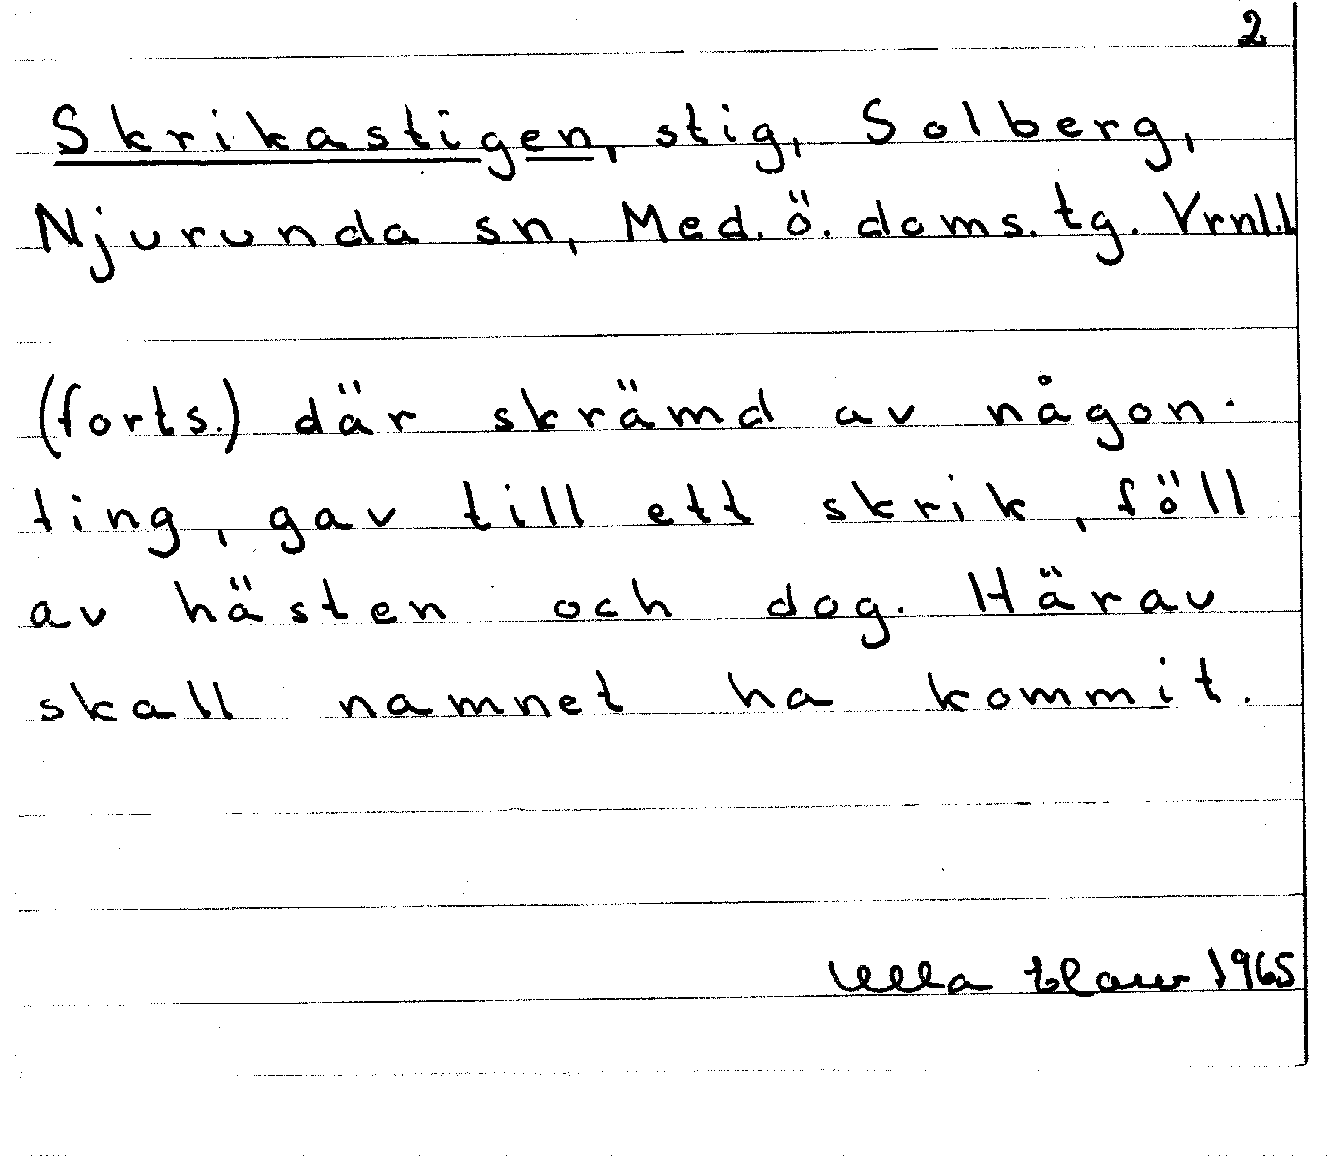 2
Skrikastigen, stig, Solberg,
Njurunda sn, Med. ö. doms. tg. Vrnl.l
(forts.) där skrämd av någon-
ting, gav till ett skrik, föll
av hästen och dog. Härav
skall namnet ha kommit.
Ulla 1965